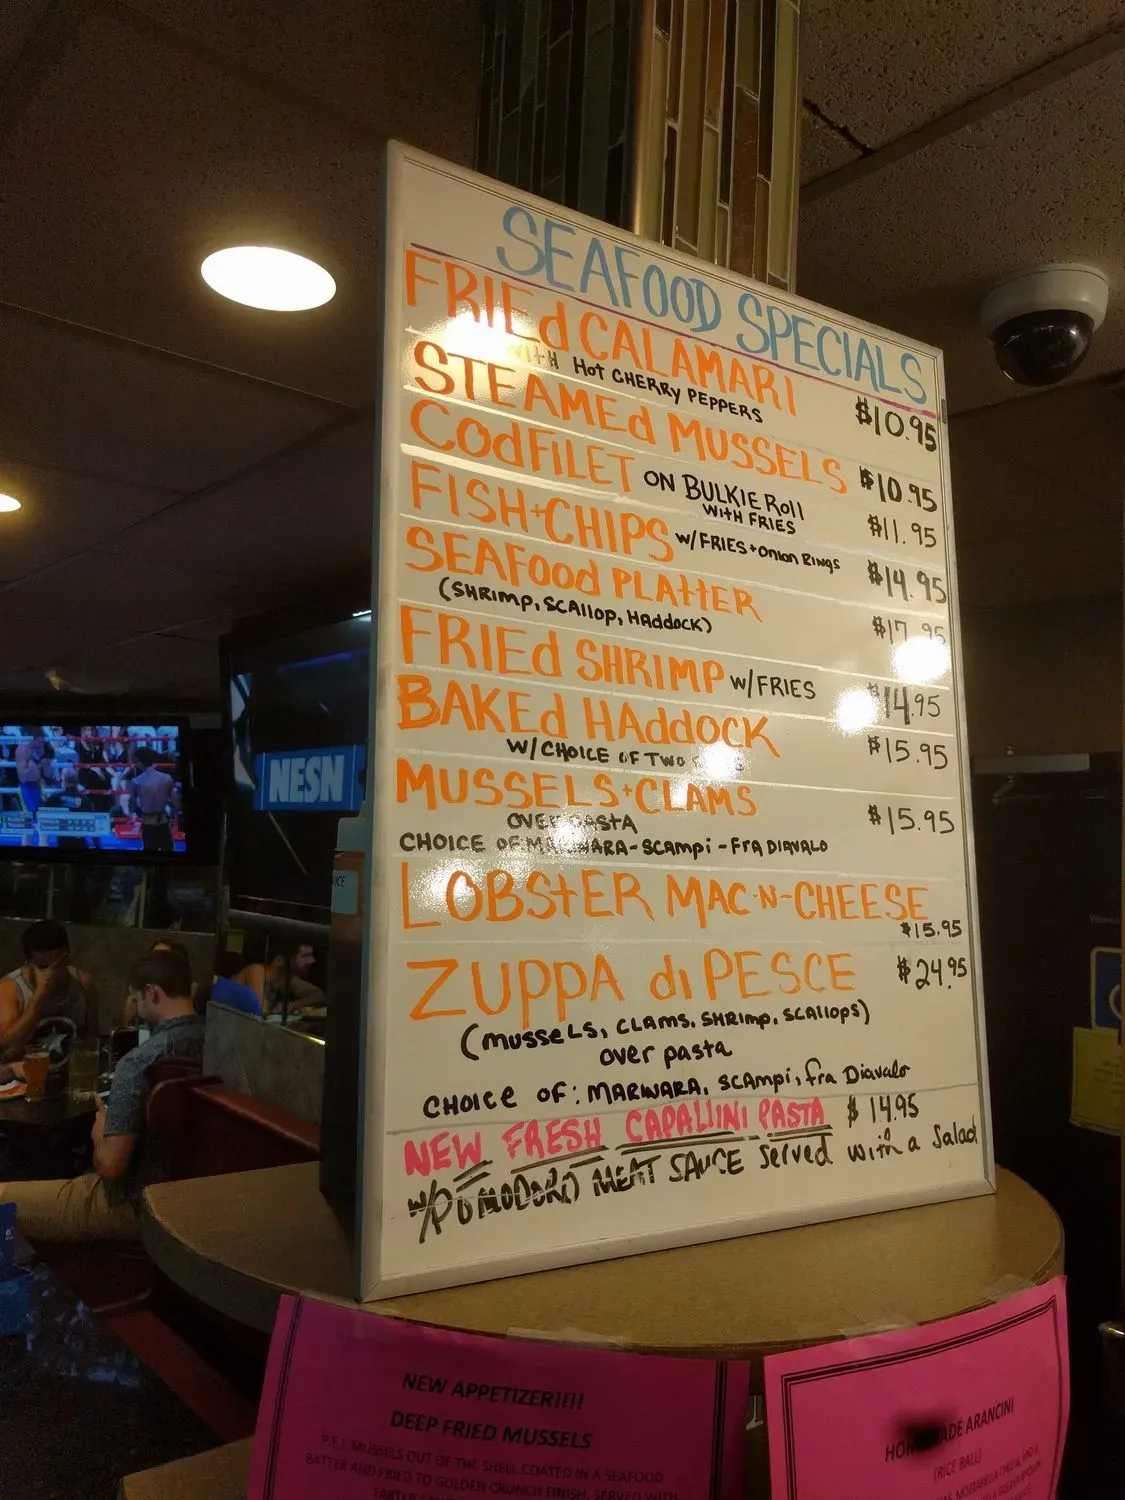 SEAFOOD SPECIALS
FRIEd CALAMARI
WITH HOT CHERRY PEPPERS $10.95
STEAMEd MUSSELS $10.95
COdFILET ON BULKIE ROll
WITH FRIES $11.95
FISH+CHIPS w/FRIES+Onion RINGS $14.95
SEAFood PLAttER
(SHRIMP, SCAllOP, HAddocK) $17.95
FRIEd SHRIMP w/FRIES $14.95
BAKEd HAddOCK $15.95
W/CHOICE OF TWO
MUSSELS+CLAMS $15.95
OVER PASTA
CHOICE OF MARINARA-SCAMPi-FRA DIAVALO
LOBStER MAC-N-CHEESE
$15.95
ZUPPA di PESCE $24.95
(MUSSELS, CLAMS, SHRIMP, SCAllOPS)
OVER PASTA
CHOICE OF: MARINARA, SCAMPi, fra Diavalo
NEW FRESH CAPALLINI PASTA $14.95
w/POMODORO MEAT SAUCE Served with a Salad
NESN
NEW APPETIZER!!!!
DEEP FRIED MUSSELS
P.E.I. MUSSELS OUT OF THE SHELL COATED IN A SEAFOOD
BATTER AND FRIED TO GOLDEN CRUNCH FINISH. SERVED WITH
ARANCINI
(RICE BALL)